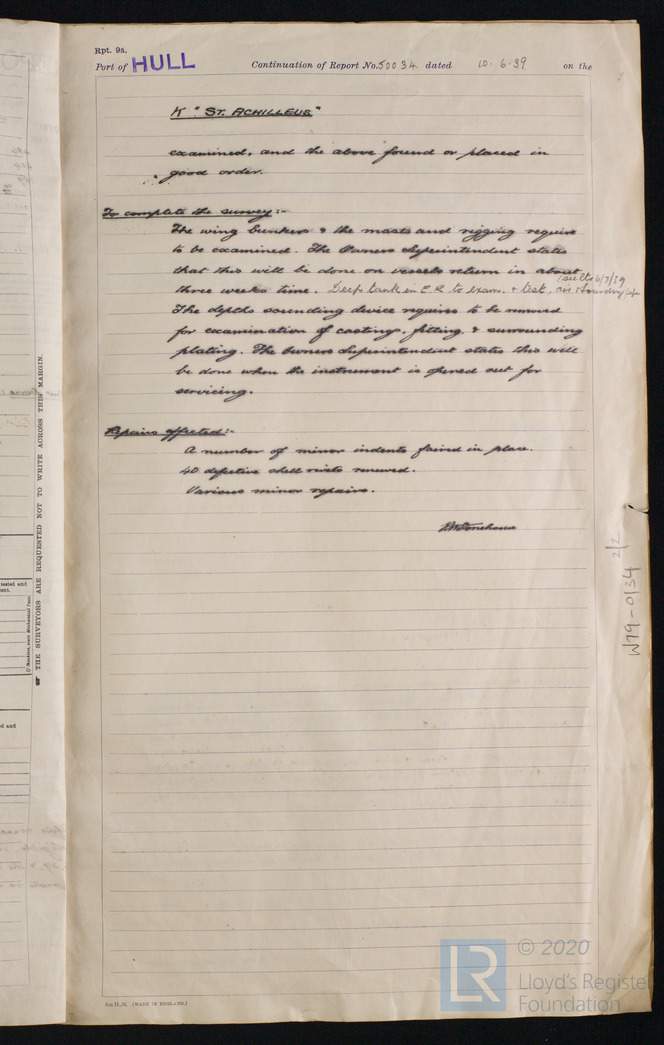 Rpt. 9a.
Port of HULL Continuation of Report No. 50034 dated 10.6.39 on the
K "ST. ACHILLEUS"
examined, and the above found or placed in
good order.
To complete the survey:-
The wing bunkers & the masts and rigging require
to be examined. The Owners Superintendent states
that this will be done on vessels return in about
(see ltr 6/7/39
three weeks time. Deep tank in E.R. to exam. & test, air & sounding
The depths sounding device requires to be removed
for examination of castings, fitting, & surrounding
plating. The Owners Superintendent states this will
be done when the instrument is opened out for
servicing.
Repairs effected:-
A number of minor indents faired in place.
40 defective shell rivets renewed.
Various minor repairs.
THE SURVEYORS ARE REQUESTED NOT TO WRITE ACROSS THIS MARGIN.
W179-0134 2/2
tested and
d and
(MADE IN ENGLAND.)
LR
© 2020
Lloyd's Register
Foundation